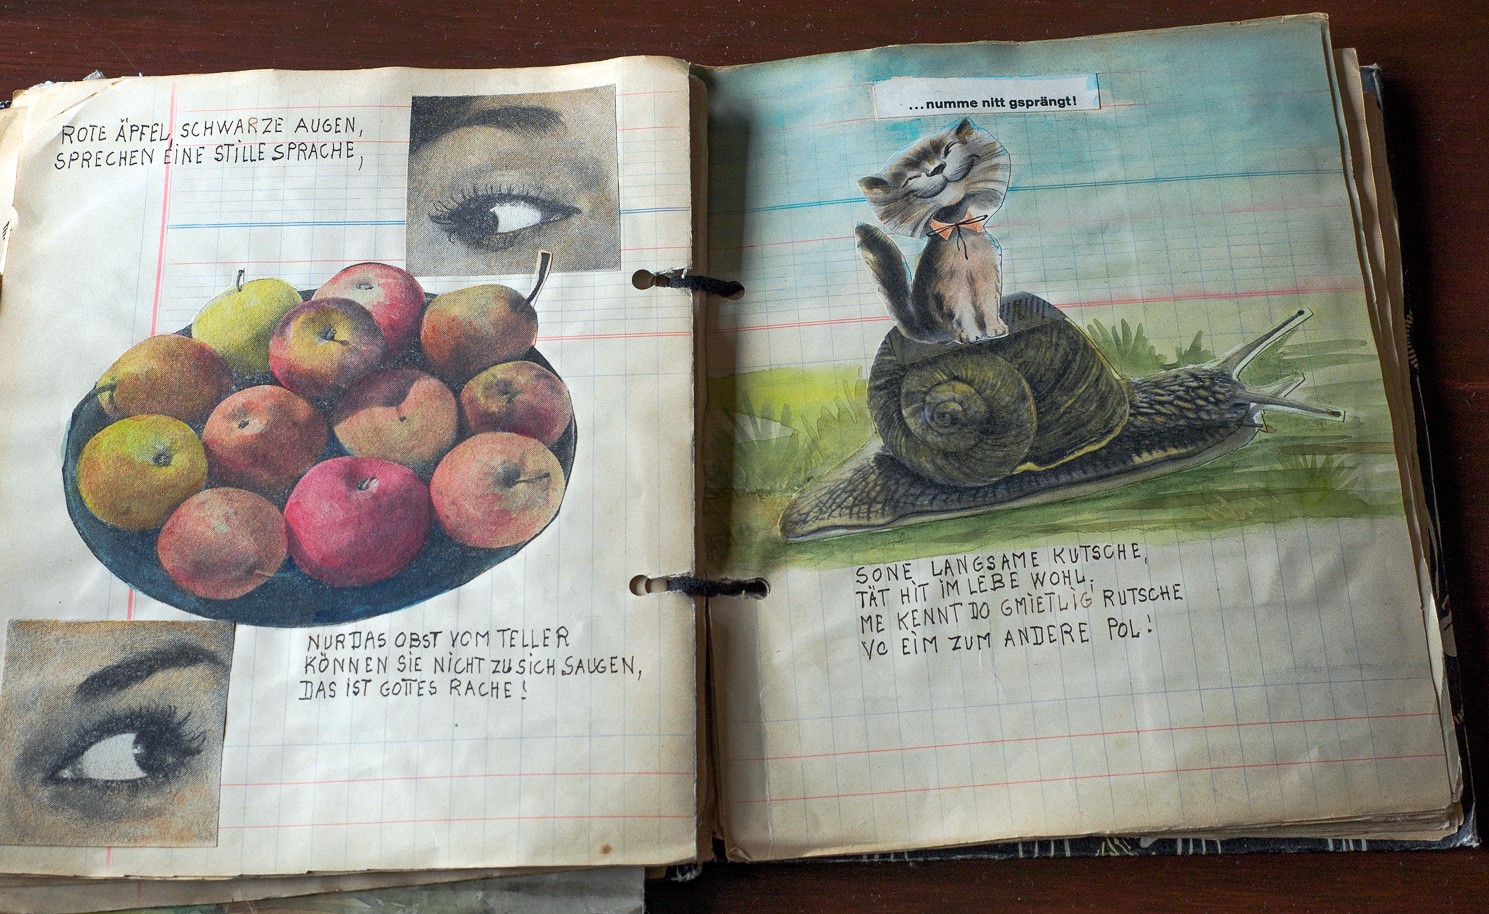 ROTE ÄPFEL, SCHWARZE AUGEN,
SPRECHEN EINE STILLE SPRACHE,
NUR DAS OBST VOM TELLER
KÖNNEN SIE NICHT ZU SICH SAUGEN,
DAS IST GOTTES RACHE!
...numme nitt gsprängt!
SONE LANGSAME KUTSCHE,
TÄT HIT IM LEBE WOHL,
ME KENNT DO GMIETLIG RUTSCHE
VO EIM ZUM ANDERE POL!